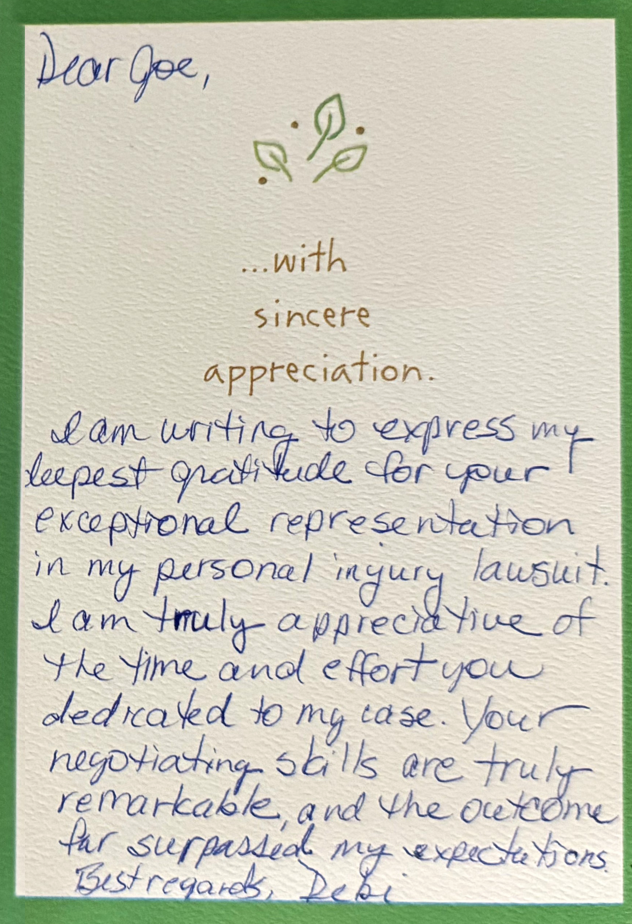 Dear Joe,
...with
sincere
appreciation.
I am writing to express my
deepest gratitude for your
exceptional representation
in my personal injury lawsuit.
I am truly appreciative of
the time and effort you
dedicated to my case. Your
negotiating skills are truly
remarkable, and the outcome
far surpassed my expectations.
Best regards, Debi